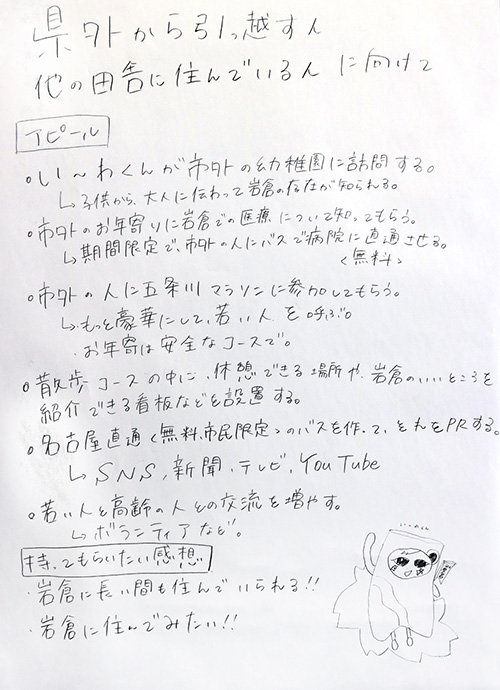 県外から引っ越す人
他の田舎に住んでいる人 に向けて
アピール
○い〜わくんが市外の幼稚園に訪問する。
↳子供から、大人に伝わって岩倉の存在が知られる。
○市外のお年寄りに岩倉での医療について知ってもらう。
↳期間限定で、市外の人にバスで病院に直通させる。
<無料>
○市外の人に五条川マラソンに参加してもらう。
↳・もっと豪華にして、若い人を呼ぶ。
・お年寄は安全なコースで。
○散歩コースの中に、休憩できる場所や、岩倉のいいところを
紹介できる看板などを設置する。
○名古屋直通<無料、市民限定>のバスを作って、それをPRする。
↳SNS、新聞、テレビ、YouTube
○若い人と高齢の人との交流を増やす。
↳ボランティアなど。
持ってもらいたい感想
・岩倉に長い間も住んでいられる!!
・岩倉に住んでみたい!!
い〜わくん